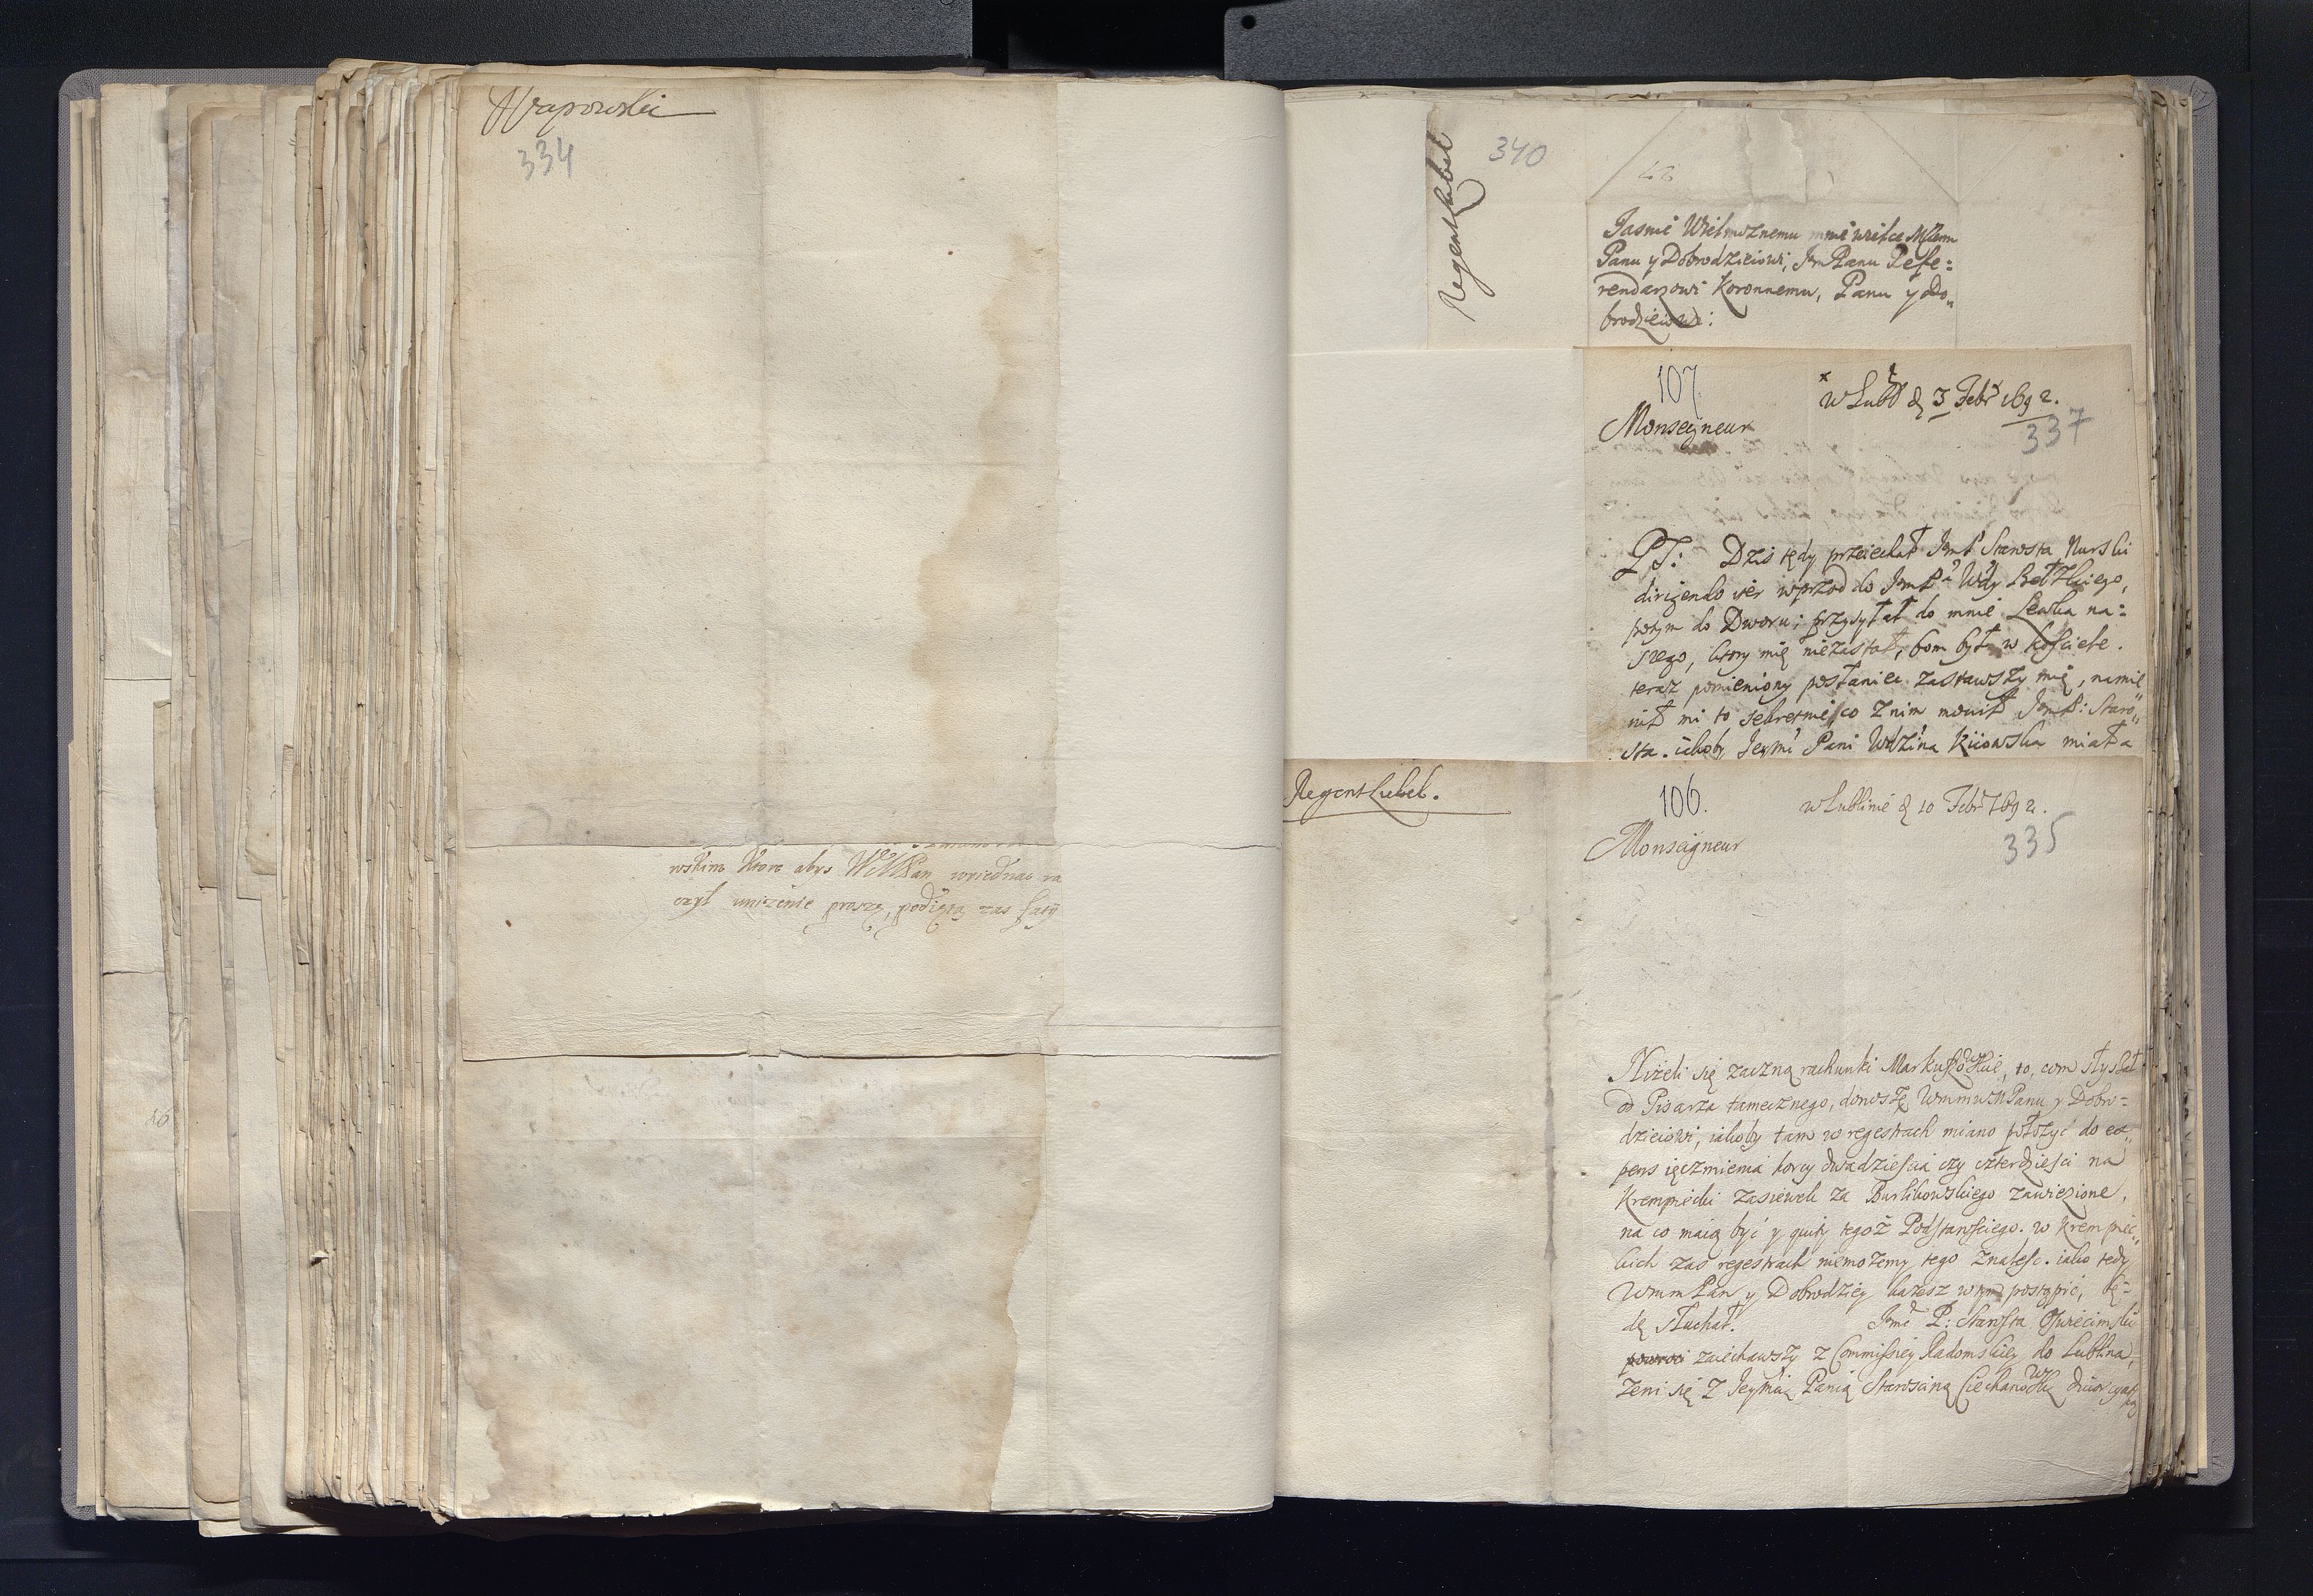 Wapowski
334
wskim ktore abys WMMPan wziednac ra
czył unizenie proszę, podięta zas
16
Regent Lubel
340
Jasnie Wielmoznemu mnie wielce Mſciwemu
Panu y Dobrodzieiowi, Jm Panu Refe=
rendarzowi Koronnemu, Panu y Do„
brodzieiowi:
107.
w Lubl d 3 Febr 1692.
337
Monseigneur
PS: Dzis tędy przeiechał JmP Starosta Nurski
dirigendo iter wprzod do JmPa Wdy Bełzkiego,
potym do Dworu; przysyłał do mnie Lewka na=
szego, ktory mię niezastał, bom był w koſciele.
teraz pomieniony posłaniec zastawszy mię, namie
nił mi to sekretnie, co znim mowił JmP: Staro„
sta. iakoby Jeymć Pani Wdzina Kiiowska miała
Regent Lubel.
106.
w Lublinie d 10 Febr 1692.
335
Monseigneur
Nizeli się zaczną rachunki Markuszowskie, to, com słyszał
od Pisarza tamecznego, donoszę WmmwMPanu y Dobro=
dzieiowi, iakoby tam w regestrach miano połozyć do ex„
pens ięczmienia korcy dwadzieſcia czy czterdzieſci na
Krempiecki zasiewek za Burlikowskiego zawiezione,
na co maią być y quity tegoż Podstaroſciego. w Krempiec„
kich zas regestrach niemozemy tego znaleſc. iako tedy
WmmPan y Dobrodziey każesz wtym postąpić, bę=
dę słuchał. Jmć P: Starosta Oſwiecimski
powroci zaiechawszy z Commiſsiey Radomskiey do Lublina,
zeni się z Jeymcią Panią Starosciną Ciechanowską